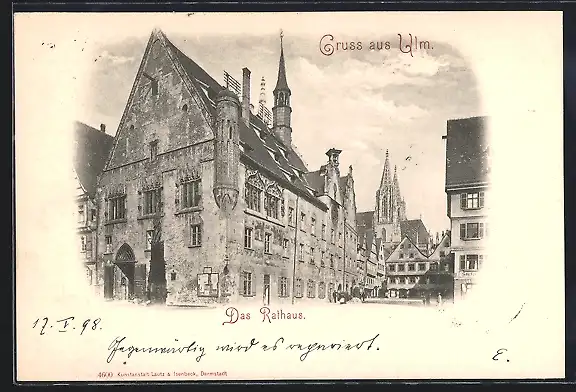 Gruss aus Ulm.
Das Rathaus.
17. V. 98.
Gegenwärtig wird es regnriert.
E.
4600 Kunstanstalt Lautz & Isenbeck, Darmstadt